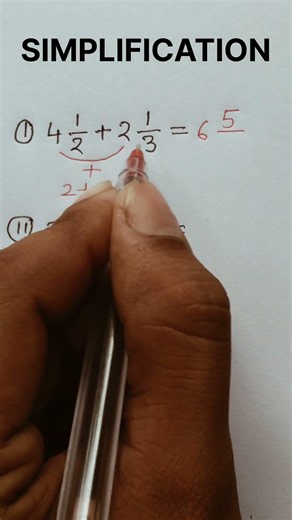 SIMPLIFICATION
① 4 1/2 + 2 1/3 = 6 5/
+
2+
⑪